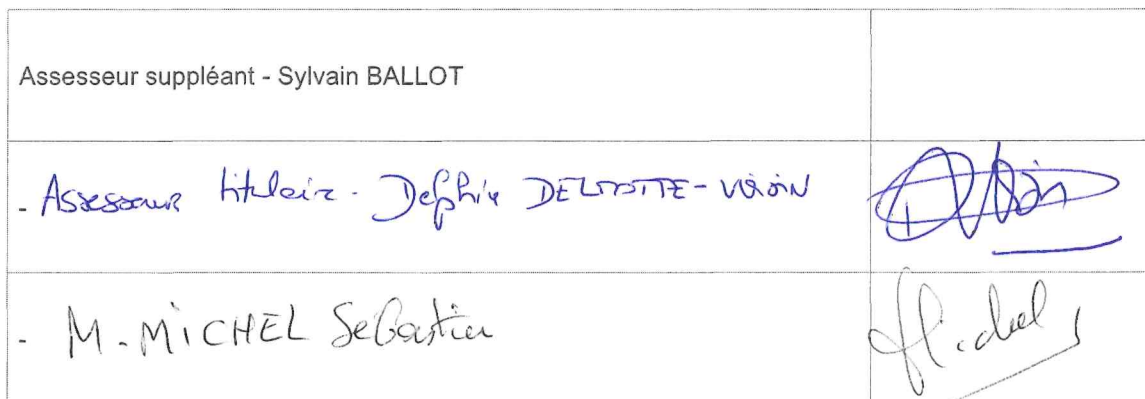 Assesseur suppléant - Sylvain BALLOT
- Assesseur titulaire - Delphine DELMOTTE-VOISIN
- M. MICHEL Sébastien
Michel